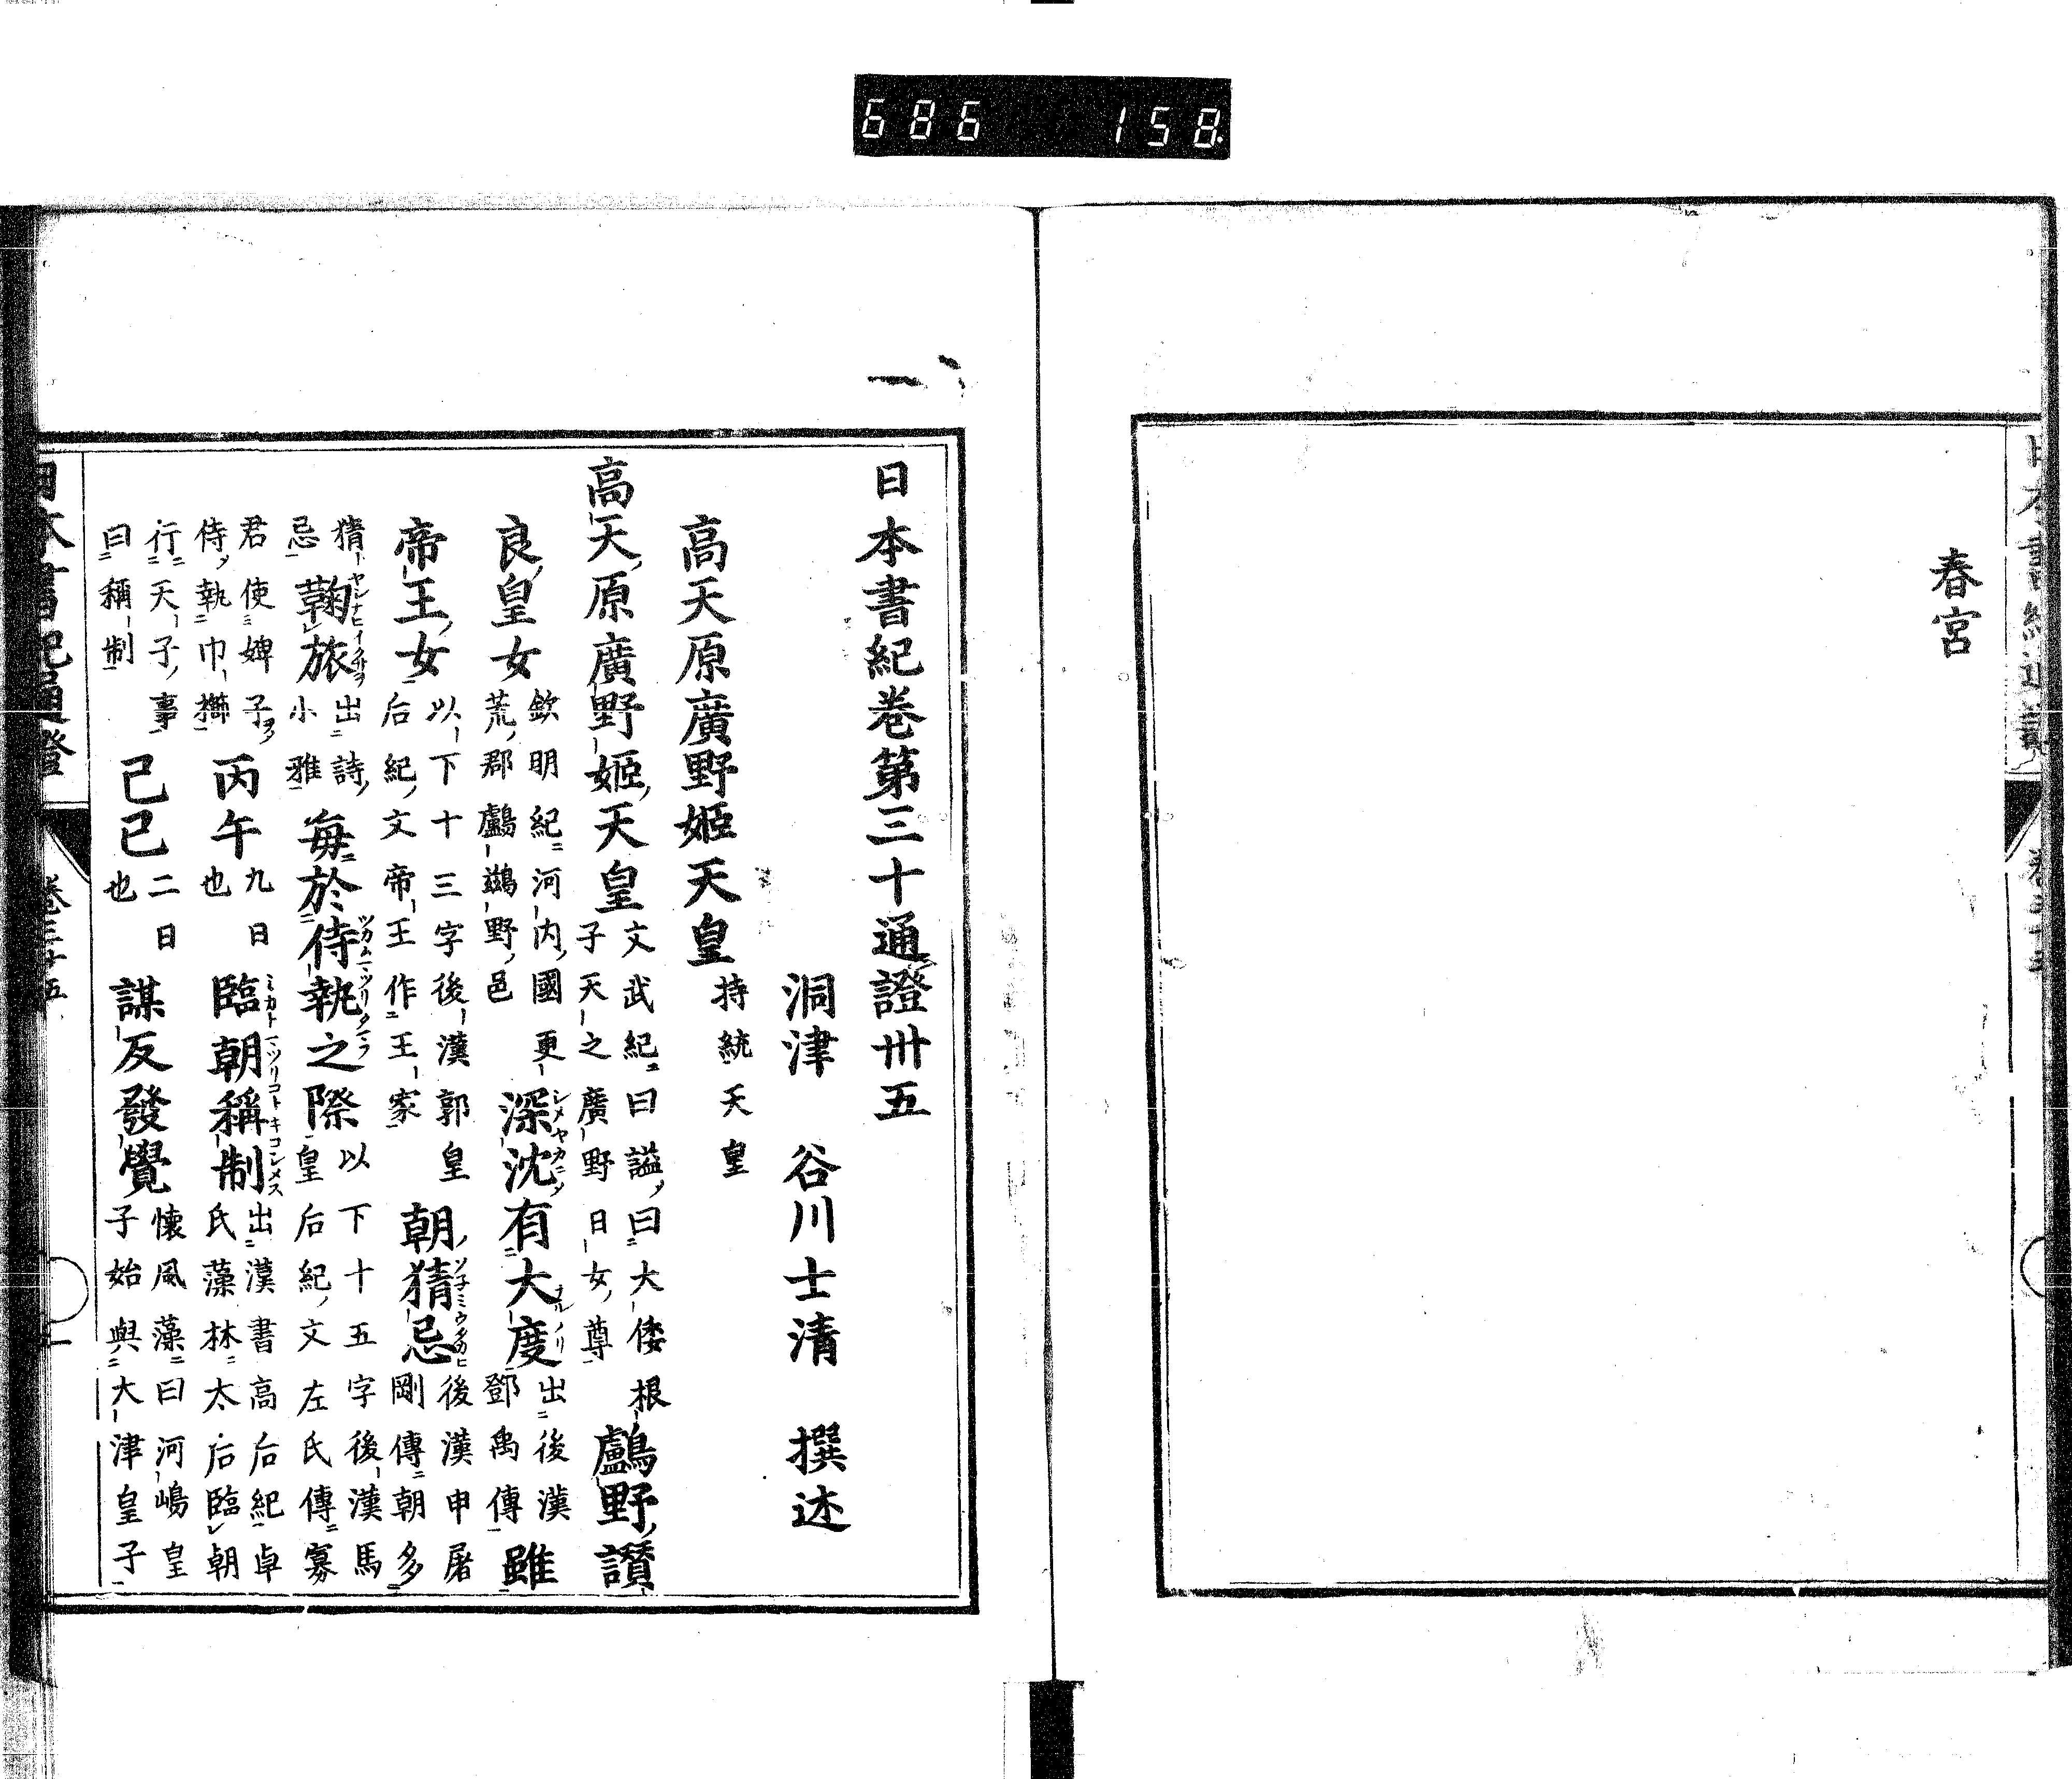 686 158
春宮
日本書紀卷第三十通證卅五
洞津 谷川士清 撰述
高天原廣野姬天皇 持統天皇
高天原廣野姬天皇 文武紀曰謚曰大倭根子天之廣野日女尊 鸕野讚
良皇女 欽明紀河内國更荒郡鸕鷀野邑 深沈有大度 出後漢鄧禹傳 雖
帝王女 以下十三字後漢郭皇后紀文帝王作王家 朝猜忌 後漢申屠剛傳朝多
猜忌 鞠旅 出詩小雅 每於侍執之際 以下十五字後漢馬皇后紀文左氏傳寡
君使婢子侍執巾櫛 丙午 九日也 臨朝稱制 出漢書高后紀卓氏藻林太后臨朝
行天子事曰稱制 己巳 二日也 謀反發覺 懷風藻曰河嶋皇子始與大津皇子
日本書紀通證 卷三十五 一